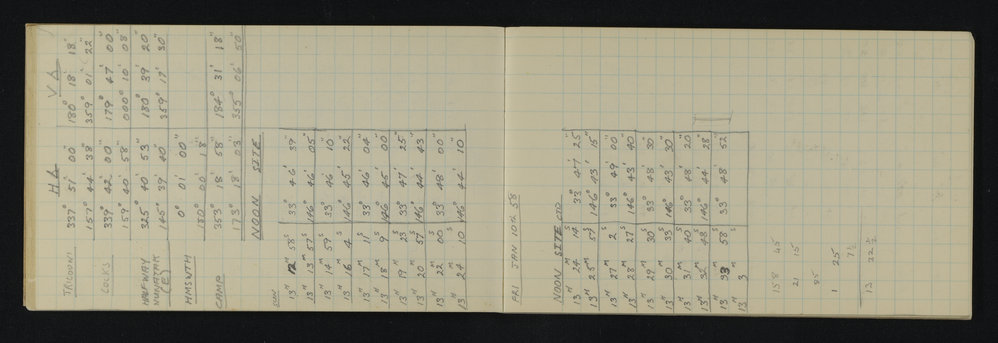 HA VA
337° 51' 00" 180° 18' 18"
157° 44' 38" 359° 01' 22"
COCKS 339° 42' 00" 179° 47' 00"
159° 40' 58" 000° 10' 08"
HALFWAY 325° 40' 53" 180° 39' 20"
NUNATAK (E) 145° 39' 40" 359° 17' 30"
HMSWTH 0° 01' 00"
180° 00' 18"
CAMP 353° 18' 58" 184° 31' 18"
173° 18' 03" 355° 06' 50"
NOON SITE
SUN
13H 12M 58S 33° 46' 39"
13H 13M 57S 146° 46' 05"
13H 14M 59S 33° 46' 10"
13H 16M 4S 146° 45' 22"
13H 17M 11S 33° 46' 04"
13H 18M 9S 146° 45' 00"
13H 19M 23S 33° 47' 25"
13H 20M 57S 146° 44' 43"
13H 22M 00S 33° 48' 00"
13H 24M 10S 146° 44' 10"
FRI JAN 10th 58
NOON SITE CTD
13H 24M 14S 33° 47' 25"
13H 25M 57S 146° 43' 15"
13H 27M 2S 33° 49' 00"
13H 28M 27S 146° 43' 40"
13H 29M 30S 33° 48' 30"
13H 30M 33S 146° 43' 30"
13H 31M 40S 33° 48' 20"
13H 32M 48S 146° 44' 28"
13H 33M 58S 33° 48' 52"
13H 3M
158 45
21 15
1 25
7½
13 22½